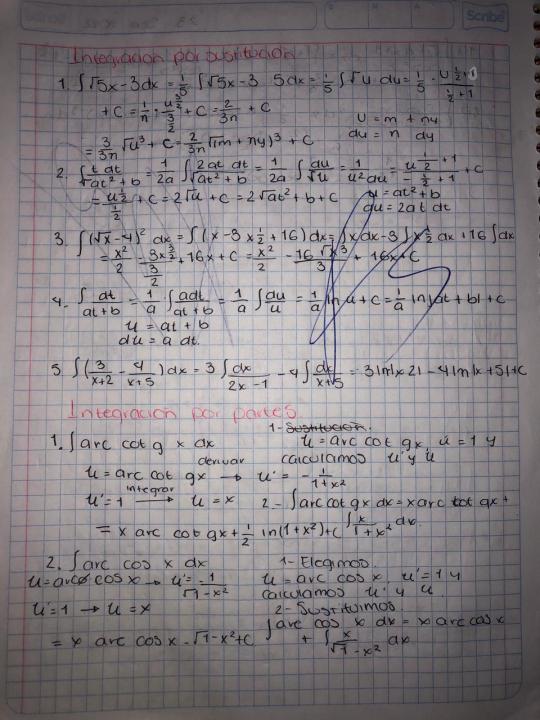 Scribe
Integracion por sustitución
1. ∫√5x-3 dx = 1/5 ∫√5x-3 5dx = 1/5 ∫√u du = 1/5 · u^(1/2+1)/(1/2+1)
+ C = 1/n · u^(3/2)/(3/2) + C = 2/3n + C
u = m + ny
du = n dy
= 3/3n √u³ + C = 2/3n √(m + ny)³ + C
2. ∫ t dt/√at²+b = 1/2a ∫ 2at dt/√at²+b = 1/2a ∫ du/√u = 1/u²du = u^(1/2+1)/(-1/2+1) + C
= u^(1/2)/(1/2) + C = 2√u + C = 2√at²+b + C
u = at²+b
du = 2at dt
3. ∫(√x-4)² dx = ∫(x-3 x 1/2 + 16) dx = ∫x dx - 3∫x^(1/2) dx + 16∫dx
= x²/2 - 3x^(3/2)/(3/2) + 16x + C = x²/2 - 16√x³/3 + 16x + C
4. ∫ dt/at+b = 1/a ∫ adt/at+b = 1/a ∫ du/u = 1/a ln u + C = 1/a ln|at + b| + C
u = at + b
du = a dt.
5. ∫(3/x+2 - 4/x+5) dx = 3∫dx/2x-1 - 4∫dx/x+5 = 3ln|x2| - 4ln|x+5|+C
Integracion por partes
1. ∫arc cot g x dx
1- Sustitución.
u = arc cot gx, u' = 1 y
calculamos u' y u
u = arc cot gx derivar → u' = - 1/1+x²
u' = 1 integrar → u = x
2- ∫arc cot gx dx = x arc cot gx +
∫ x/1+x² dx.
= x arc cot gx + 1/2 ln(1+x²)+C
2. ∫arc cos x dx
1- Elegimos.
u = arc cos x → u' = 1/√1-x²
u = arc cos x, u' = 1 y
calculamos u' y u
u' = 1 → u = x
2- Sustituimos
∫arc cos x dx = x arc cos x
+ ∫ x/√1-x² dx
= x arc cos x - √1-x²+C